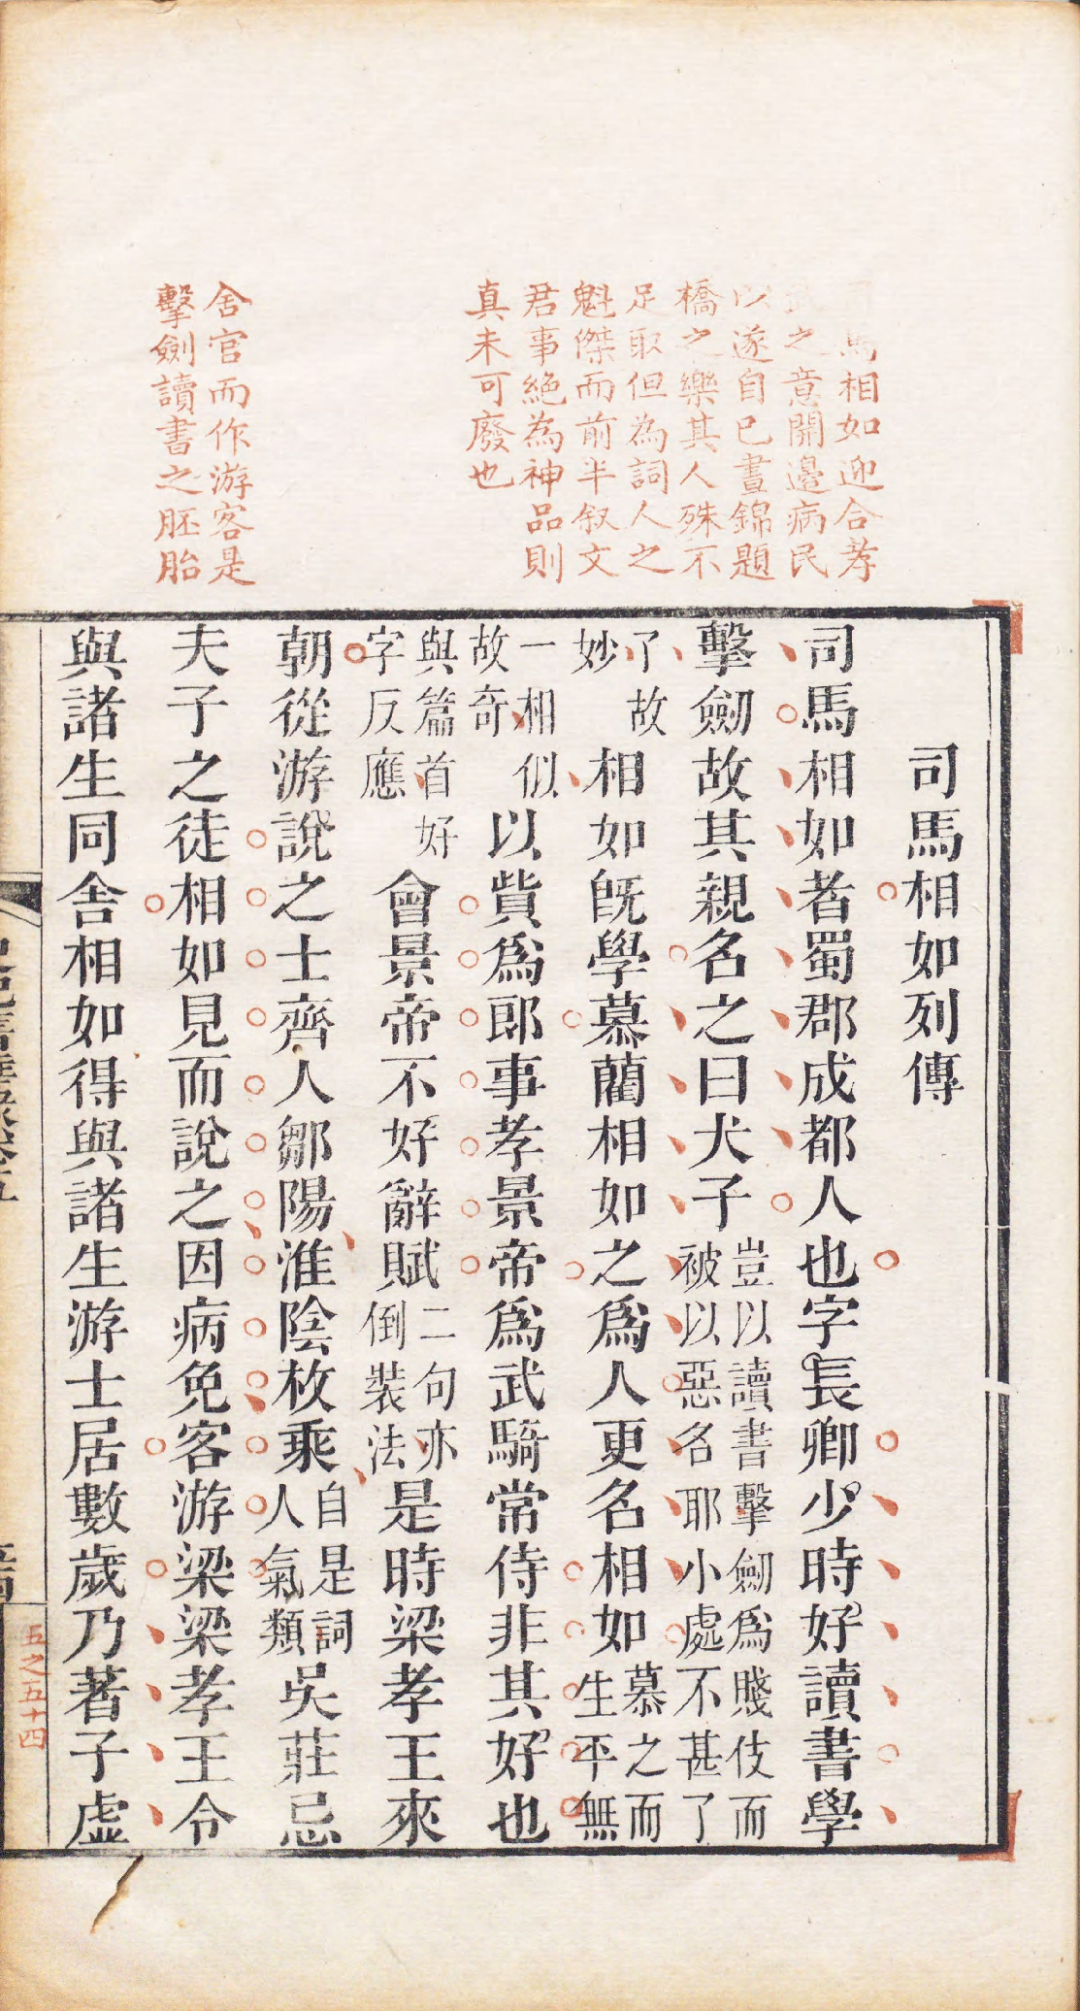 馬相如迎合孝
武之意開邊病民
以遂自已晝錦題
橋之樂其人殊不
足取但為詞人之
魁傑而前半叙文
君事絕為神品則
真未可廢也
舍官而作游客是
擊劍讀書之胚胎
司馬相如列傳
司馬相如者蜀郡成都人也字長卿少時好讀書學
擊劒故其親名之曰犬子豈以讀書擊劒爲賤伎而
被以惡名耶小處不甚了
了故
妙
相如旣學慕藺相如之爲人更名相如慕之而
生平無
一相似
故奇
以貲爲郎事孝景帝爲武騎常侍非其好也
與篇首好
字反應
會景帝不好辭賦二句亦
倒裝法
是時梁孝王來
朝從游說之士齊人鄒陽淮陰枚乘自是詞
人氣類
吳莊忌
夫子之徒相如見而說之因病免客游梁梁孝王令
與諸生同舍相如得與諸生游士居數歲乃著子虛
五之五十四